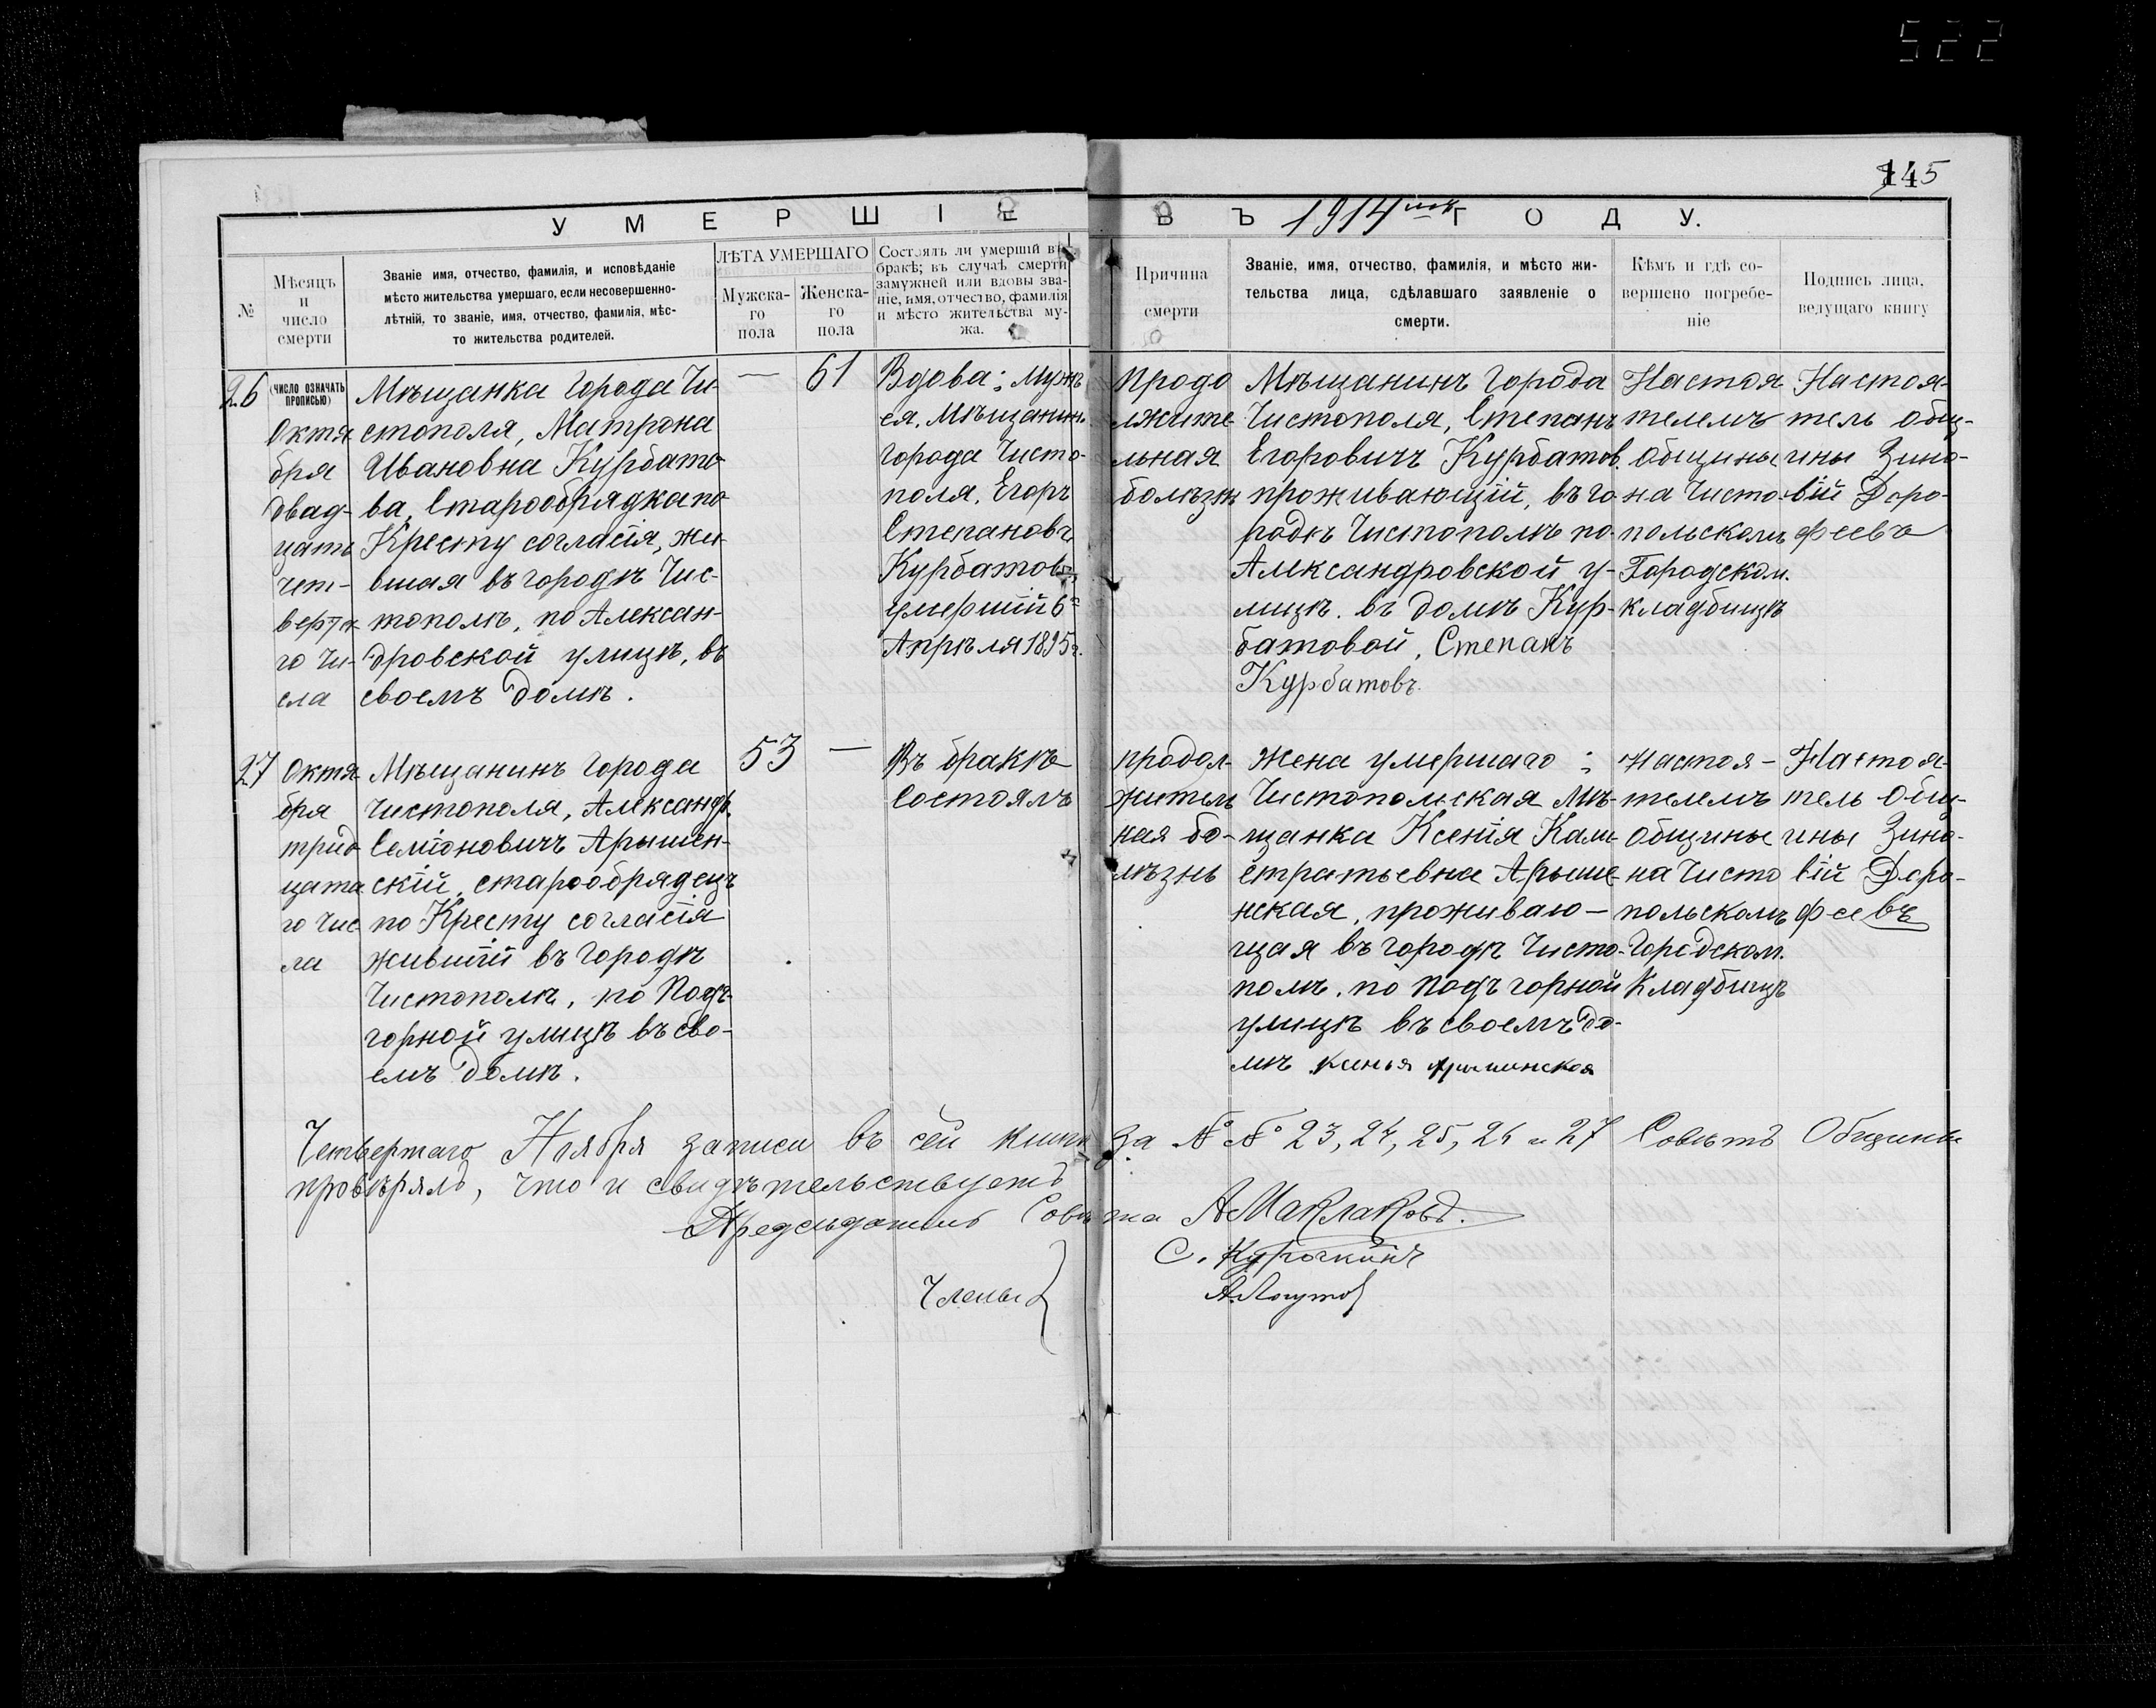 522
145
УМЕРШІЕ
ВЪ 1914мъ ГОДУ.
№
Мѣсяцъ
и
число
смерти
Званіе имя, отчество, фамилія, и исповѣданіе
мѣсто жительства умершаго, если несовершенно-
лѣтній, то званіе, имя, отчество, фамилія, мѣс-
то жительства родителей.
ЛѢТА УМЕРШАГО
Мужска-
го
пола
Женска-
го
пола
Состоялъ ли умершій въ
бракѣ; въ случаѣ смерти
замужней или вдовы зва-
ніе, имя, отчество, фамилія
и мѣсто жительства му-
жа.
Причина
смерти
Званіе, имя, отчество, фамилія, и мѣсто жи-
тельства лица, сдѣлавшаго заявленіе о
смерти.
Кѣмъ и гдѣ со-
вершено погребе-
ніе
Подпись лица,
ведущаго книгу
26
(ЧИСЛО ОЗНАЧАТЬ
ПРОПИСЬЮ)
Октя
бря
двад-
цать
чет-
верта
го чи-
сла
Мѣщанка Города Чи-
стополя, Матрона
Ивановна Курбато-
ва, Старообрядка по
Кресту согласія, жи-
вшая въ городѣ Чис-
тополѣ, по Алексан-
дровской улицѣ, въ
своемъ домѣ.
— 61
Вдова: Мужъ
ея, Мѣщанинъ
Города Чисто-
поля, Егоръ
Степановъ
Курбатовъ,
умершій 6го
Апрѣля 1895г.
Продо
лжите-
льная
болѣзнь
Мѣщанинъ Города
Чистополя, Степанъ
Егоровичъ Курбатов.
проживающій, въ го-
родѣ Чистополѣ по
Александровской у-
лицѣ. въ домѣ Кур-
батовой, Степанъ
Курбатовъ.
Настоя
телемъ
Общины
на Чисто-
польскомъ
Городском.
кладбищѣ
Настоя-
тель общ-
ины Зино-
вій Доро-
феевъ
27
Октя
бря
трид
цата
го чис
ла
Мѣщанинъ Города
Чистополя, Александр.
Семіоновичъ Арышен-
скій, старообрядецъ
по Кресту согласія
жившій въ Городѣ
Чистополѣ, по Подъ-
горной улицѣ въ сво-
емъ домѣ.
53 —
Въ бракѣ
Состоялъ
продол-
житель
ная бо-
лѣзнь
Жена умершаго:
Чистопольская Мѣ-
щанка Ксенія Кали-
стратьевна Арыше-
нская, проживаю-
щая въ городѣ Чисто-
полѣ, по Подъ горной
улицѣ въ своемъ до-
мѣ
Настоя-
телемъ
Общины
на Чисто
польскомъ
Городском.
Кладбищѣ
Настоя-
тель Общ-
ины Зино-
вій Доро-
феевъ
Четвертаго Ноября записи въ сей книгѣ за №№ 23, 24, 25, 26 и 27 Совѣтъ Общины
провѣрялъ, что и свидѣтельствуетъ
Предсѣдатель Совѣта А Маклаковъ.
С. Курочкинъ
Члены